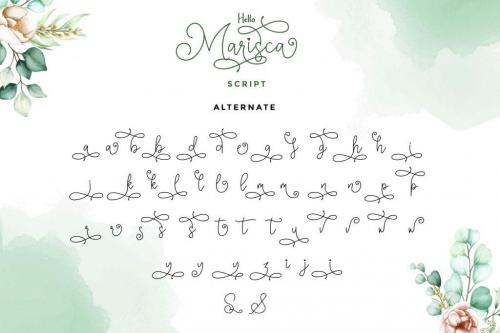 Hello
Marisca
SCRIPT
ALTERNATE
a a b b d d e g g g h h i
j k k l l l m m n n p p
r r s s s t t t y v w w
y y y z z i j j
S S